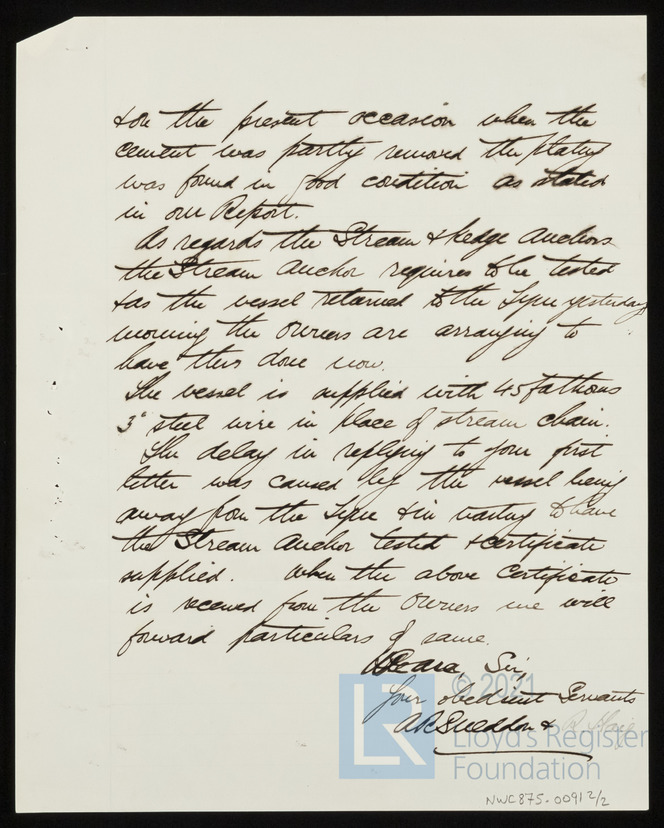 & on the present occasion when the
cement was partly removed the plating
was found in good condition as stated
in our Report.
As regards the Stream & Kedge Anchors
the Stream Anchor requires to be tested
& as the vessel returned to the Tyne yesterday
morning the Owners are arranging to
have this done now.
The vessel is supplied with 45 fathoms
3" steel wire in place of stream chain.
The delay in replying to your first
letter was caused by the vessel being
away from the Tyne & in waiting to have
the Stream Anchor tested & certificate
supplied. When the above Certificate
is received from the Owners we will
forward particulars of same.
We are, Sir,
Your obedient Servants
A R Sneddon &
© 2021
Lloyd's Register
Foundation
LR
NWC875.0091 2/2